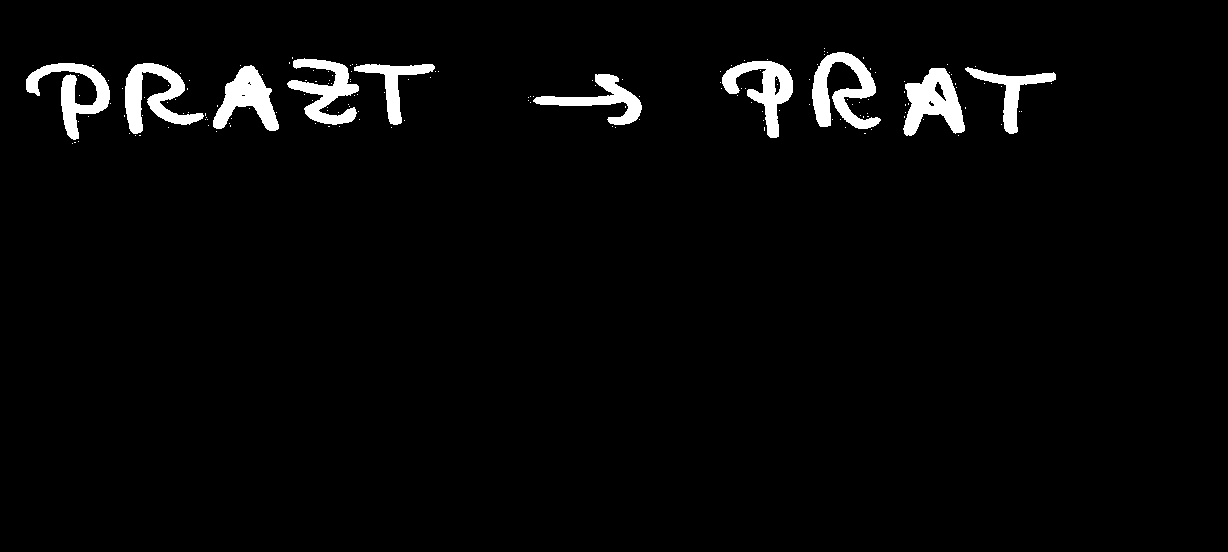 PRAZT → PRAT